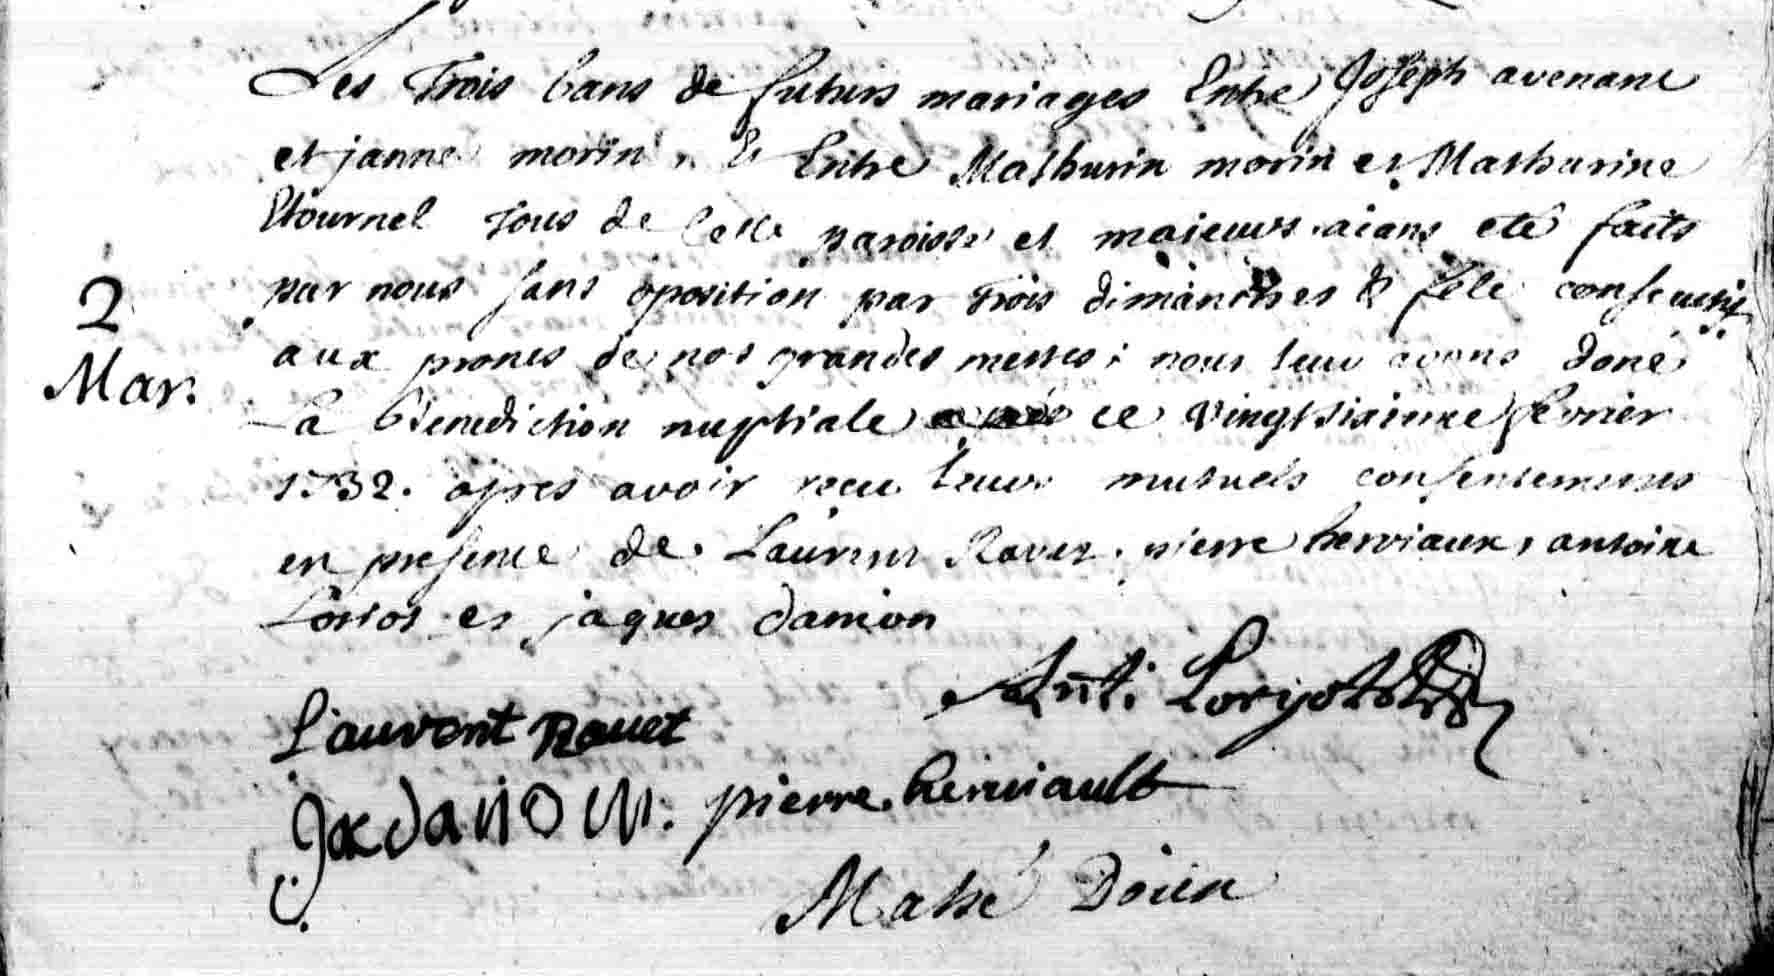 Les Trois bans de futurs mariages Entre Joseph avenant
et janne morin, & Entre Mathurin morin et Mathurine
Etournel Tous de cette paroisse et majeurs aians eté faits
par nous sans oposition par Trois dimanches & fête consecutifs
aux prones de nos grandes messes; nous leur avons doné
2
Mar.
La Benediction nuptiale ce vingtsixieme fevrier
1732. apres avoir recu leurs mutuels consentements
en presence de Laurent Rouet, pierre herviaux, antoine
Loriot et jaques danion
Laurent Rouet
Ant. Loryot
Jac danion. pierre. herviault
Mahé Doien